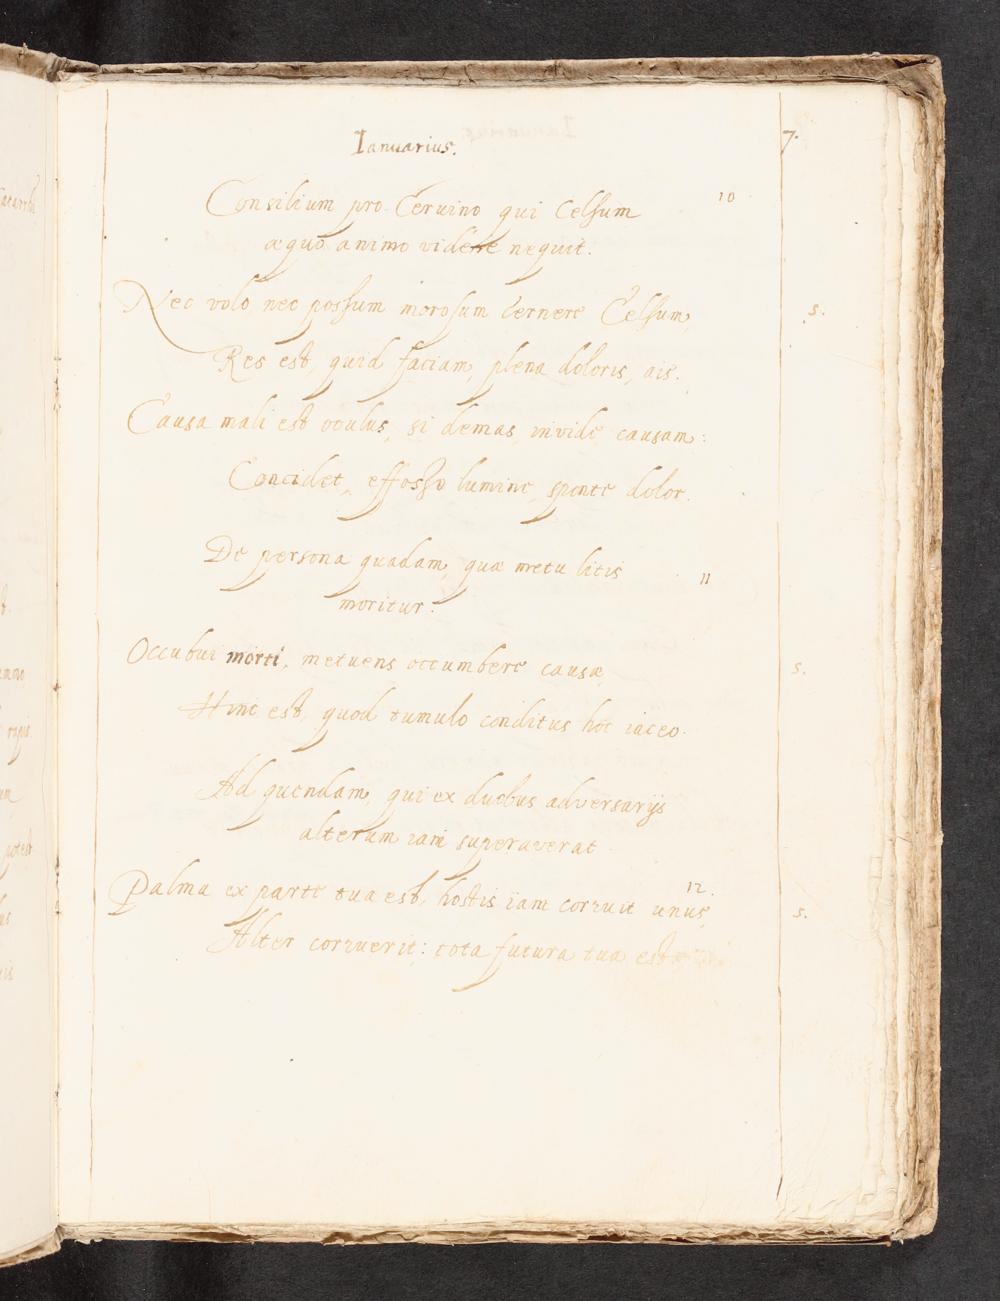 Ianuarius.
7.
Consilium pro Ceruino qui Celsum
10
æquo animo videre nequit.
Nec volo nec possum morosum cernere Celsum,
s.
Res est, quid faciam, plena doloris, ais.
Causa mali est oculus, si demas invide causam:
Concidet, effosso lumine, sponte dolor.
De persona quadam, quæ metu litis
11
moritur.
Occubui morti, metuens occumbere causæ,
s.
Hinc est, quod tumulo conditus hoc iaceo.
Ad quendam, qui ex duobus adversarijs
alterum iam superaverat
12.
Palma ex parte tua est, hostis iam corruit unus,
s.
Alter corruerit: tota futura tua est.